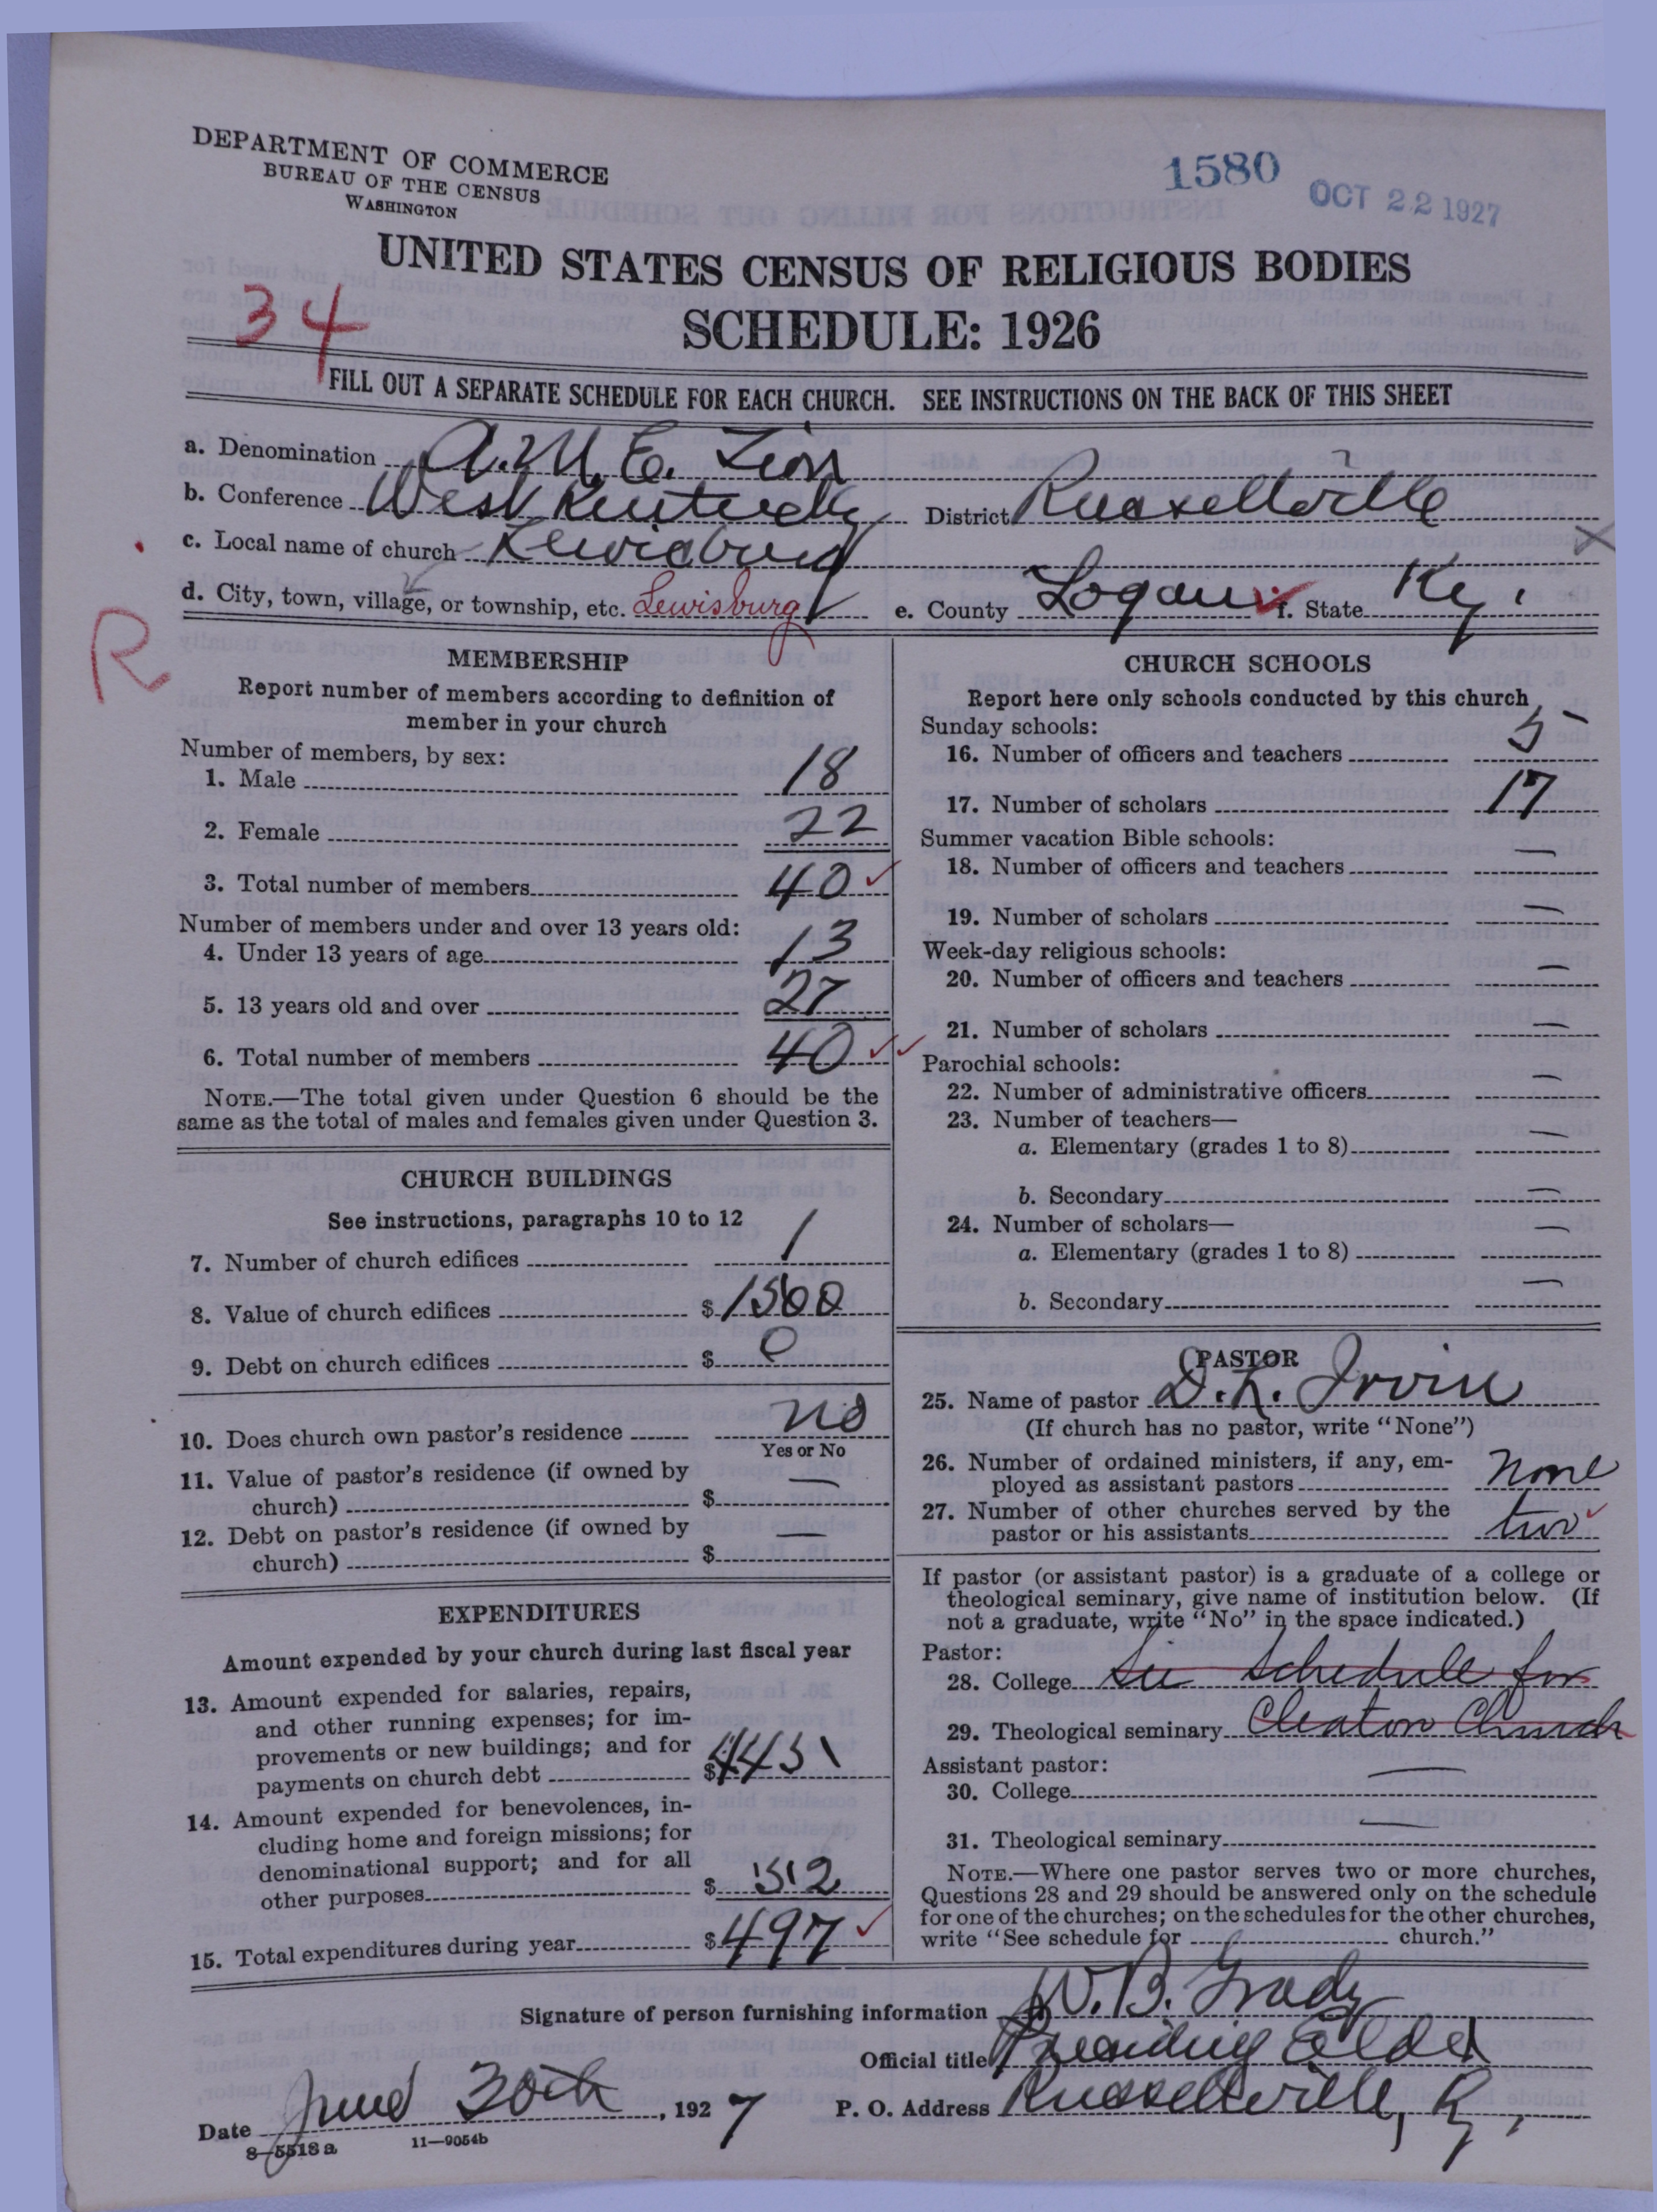 DEPARTMENT OF COMMERCE
BUREAU OF THE CENSUS
WASHINGTON
1580
OCT 22 1927
UNITED STATES CENSUS OF RELIGIOUS BODIES
SCHEDULE: 1926
34
FILL OUT A SEPARATE SCHEDULE FOR EACH CHURCH. SEE INSTRUCTIONS ON THE BACK OF THIS SHEET
a. Denomination A.M.E. Zion
b. Conference West Kentucky District Russellville
c. Local name of church Lewisburg
d. City, town, village, or township, etc. Lewisburg e. County Logan f. State Ky.
R
MEMBERSHIP
Report number of members according to definition of
member in your church
Number of members, by sex:
1. Male 18
2. Female 22
3. Total number of members 40
Number of members under and over 13 years old:
4. Under 13 years of age 13
5. 13 years old and over 27
6. Total number of members 40
NOTE.—The total given under Question 6 should be the
same as the total of males and females given under Question 3.
CHURCH BUILDINGS
See instructions, paragraphs 10 to 12
7. Number of church edifices 1
8. Value of church edifices $ 1500
9. Debt on church edifices $ 0
10. Does church own pastor's residence no
Yes or No
11. Value of pastor's residence (if owned by
church) $ —
12. Debt on pastor's residence (if owned by
church) $ —
EXPENDITURES
Amount expended by your church during last fiscal year
13. Amount expended for salaries, repairs,
and other running expenses; for im-
provements or new buildings; and for
payments on church debt $ 445
14. Amount expended for benevolences, in-
cluding home and foreign missions; for
denominational support; and for all
other purposes $ 52
15. Total expenditures during year $ 497
CHURCH SCHOOLS
Report here only schools conducted by this church
Sunday schools:
16. Number of officers and teachers 5
17. Number of scholars 17
Summer vacation Bible schools:
18. Number of officers and teachers —
19. Number of scholars —
Week-day religious schools:
20. Number of officers and teachers —
21. Number of scholars —
Parochial schools:
22. Number of administrative officers —
23. Number of teachers—
a. Elementary (grades 1 to 8) —
b. Secondary —
24. Number of scholars—
a. Elementary (grades 1 to 8) —
b. Secondary —
PASTOR
25. Name of pastor D. K. Irvin
(If church has no pastor, write "None")
26. Number of ordained ministers, if any, em-
ployed as assistant pastors none
27. Number of other churches served by the
pastor or his assistants two
If pastor (or assistant pastor) is a graduate of a college or
theological seminary, give name of institution below. (If
not a graduate, write "No" in the space indicated.)
Pastor:
28. College See schedule for
29. Theological seminary Cleaton Church
Assistant pastor:
30. College —
31. Theological seminary —
NOTE.—Where one pastor serves two or more churches,
Questions 28 and 29 should be answered only on the schedule
for one of the churches; on the schedules for the other churches,
write "See schedule for church."
Signature of person furnishing information W. B. Grady
Official title Presiding Elder
Date June 30th, 1927 P. O. Address Russellville, Ky.
8-5518a 11-9054b